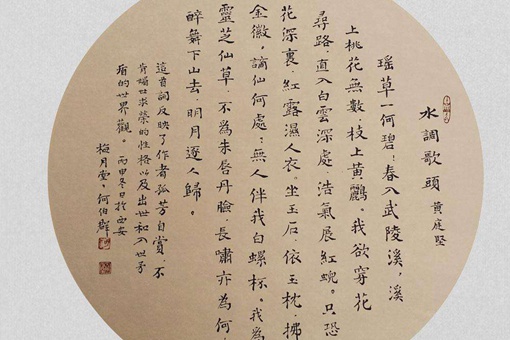 水調歌頭 黄庭堅
瑶草一何碧!春入武陵溪,溪
上桃花無數,枝上黄鸝。我欲穿花
尋路,直入白雲深處,浩氣展紅蜺。只恐
花深裏,紅露濕人衣。坐玉石,依玉枕,拂
金徽,謫仙何處,無人伴我白螺杯。我為
靈芝仙草,不為朱唇丹臉,長嘯亦為何
醉舞下山去,明月逐人歸。
這首詞反映了作者孤芳自賞,不
肯媚世求榮的性格以及出世和入世矛
盾的世界觀。丙申冬日於西安
梅月堂,何伯群